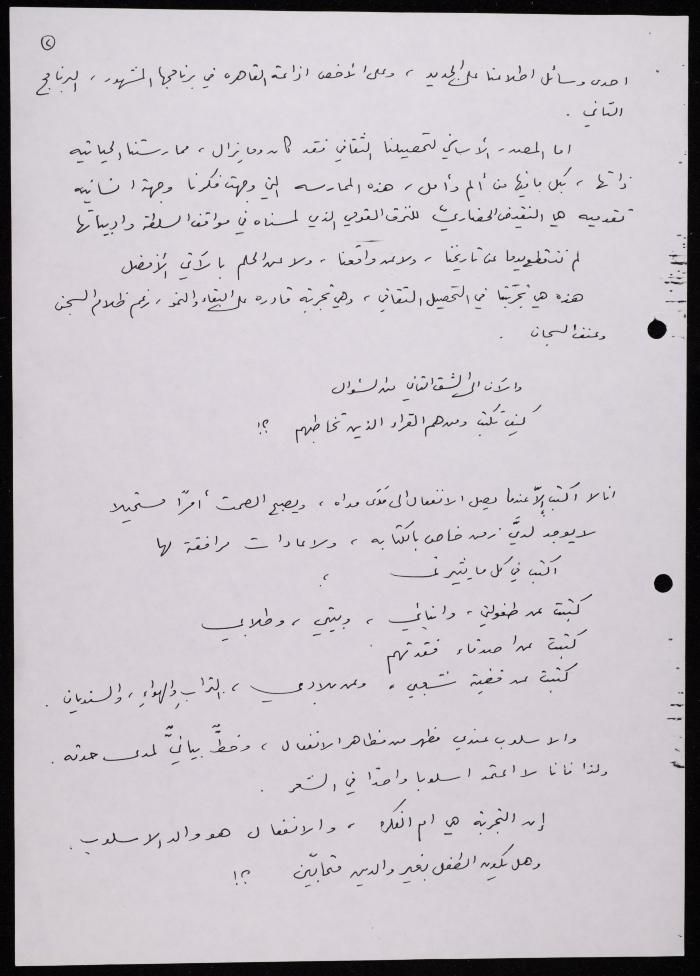 ٢
احدى وسائل اطلاعنا على الجديد ، وعلى الأخص اذاعة القاهره في برنامجها المشهور ، البرنامج
الثاني .
اما المصدر الأساسي لتحصيلنا الثقافي فقد كان وما يزال ، ممارستنا الحياتيه
ذاتها ، بكل ما فيها من ألم وأمل ، هذه الممارسه التي وجهت فكرنا وجهة انسانيه
تقدميه هي النقيض الحضاري للنزق القومي الذي لمسناه في مواقف السلطة وادبياتها
لم ننقطع يوما عن تاريخنا ، ولا عن واقعنا ، ولا عن الحلم بالآتي الأفضل
هذه هي تجربتنا في التحصيل الثقافي ، وهي تجربة قادره على البقاء والنمو ، رغم ظلام السجن
وعنف السجان .
والآن الى الشق الثاني من السؤال
كيف تكتب ومن هم القراء الذين تخاطبهم ؟!
انا لا اكتب إلّا عندما يصل الانفعال الى مدى مداه ، ويصبح الصمت أمرًا مستحيلا
لا يوجد لديَّ زمن خاص بالكتابه ، ولا عادات مرافقة لها
اكتب في كل ما يثيرني ،
كتبت عن طفولتي ، وابنائي ، وبيتي ، وطلابي
كتبت عن اصدقاء فقدتهم .
كتبت عن قضية شعبي ، وعن بلادي ، الترابِ والهواءِ ، والسنديان .
والاسلوب عندي مظهر من مظاهر الانفعال ، وخطٌّ بيانيٌّ لمدى حدته .
ولذا فانا لا اعتمد اسلوبا واحدًا في الشعر .
إن التجربة هي ام الفكره ، والانفعال هو والد الاسلوب .
وهل يكون الطفل بغير والدين متحابّين ؟!